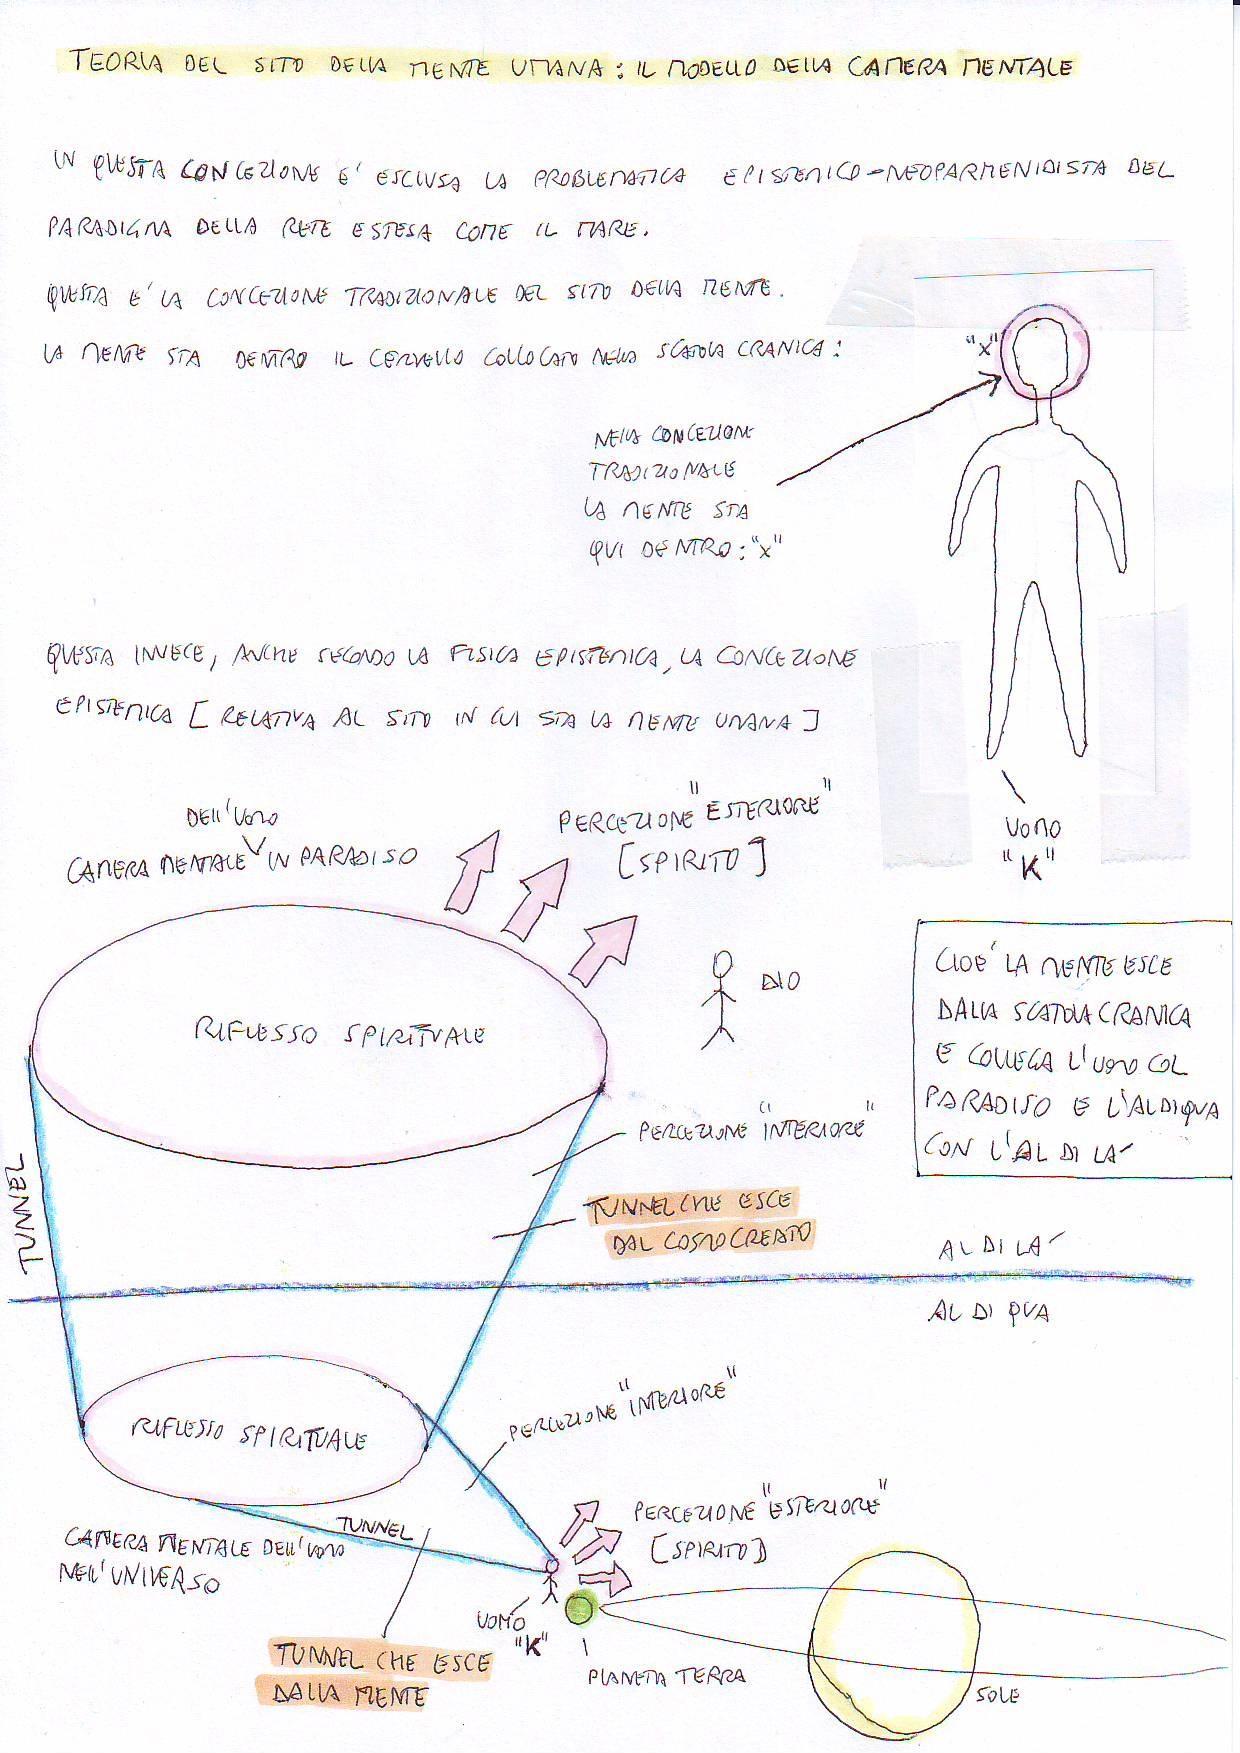 TEORIA DEL SITO DELLA MENTE UMANA: IL MODELLO DELLA CAMERA MENTALE
IN QUESTA CONCEZIONE E' ESCLUSA LA PROBLEMATICA EPISTEMICO-NEOPARMENIDISTA DEL
PARADIGMA DELLA RETE ESTESA COME IL MARE.
QUESTA E' LA CONCEZIONE TRADIZIONALE DEL SITO DELLA MENTE.
LA MENTE STA DENTRO IL CERVELLO COLLOCATO NELLA SCATOLA CRANICA:
"X"
NELLA CONCEZIONE
TRADIZIONALE
LA MENTE STA
QUI DENTRO: "X"
UOMO
"K"
QUESTA INVECE, ANCHE SECONDO LA FISICA EPISTEMICA, LA CONCEZIONE
EPISTEMICA [RELATIVA AL SITO IN CUI STA LA MENTE UMANA]
DELL'UOMO
CAMERA MENTALE IN PARADISO
PERCEZIONE "ESTERIORE"
[SPIRITO]
RIFLESSO SPIRITUALE
DIO
CIOE' LA MENTE ESCE
DALLA SCATOLA CRANICA
E COLLEGA L'UOMO COL
PARADISO E L'ALDIQUA
CON L'AL DI LA'
PERCEZIONE "INTERIORE"
TUNNEL
TUNNEL CHE ESCE
DAL COSMO CREATO
AL DI LA'
AL DI QUA
RIFLESSO SPIRITUALE
PERCEZIONE "INTERIORE"
TUNNEL
PERCEZIONE "ESTERIORE"
[SPIRITO]
CAMERA MENTALE DELL'UOMO
NELL'UNIVERSO
UOMO
"K"
TUNNEL CHE ESCE
DALLA MENTE
PIANETA TERRA
SOLE